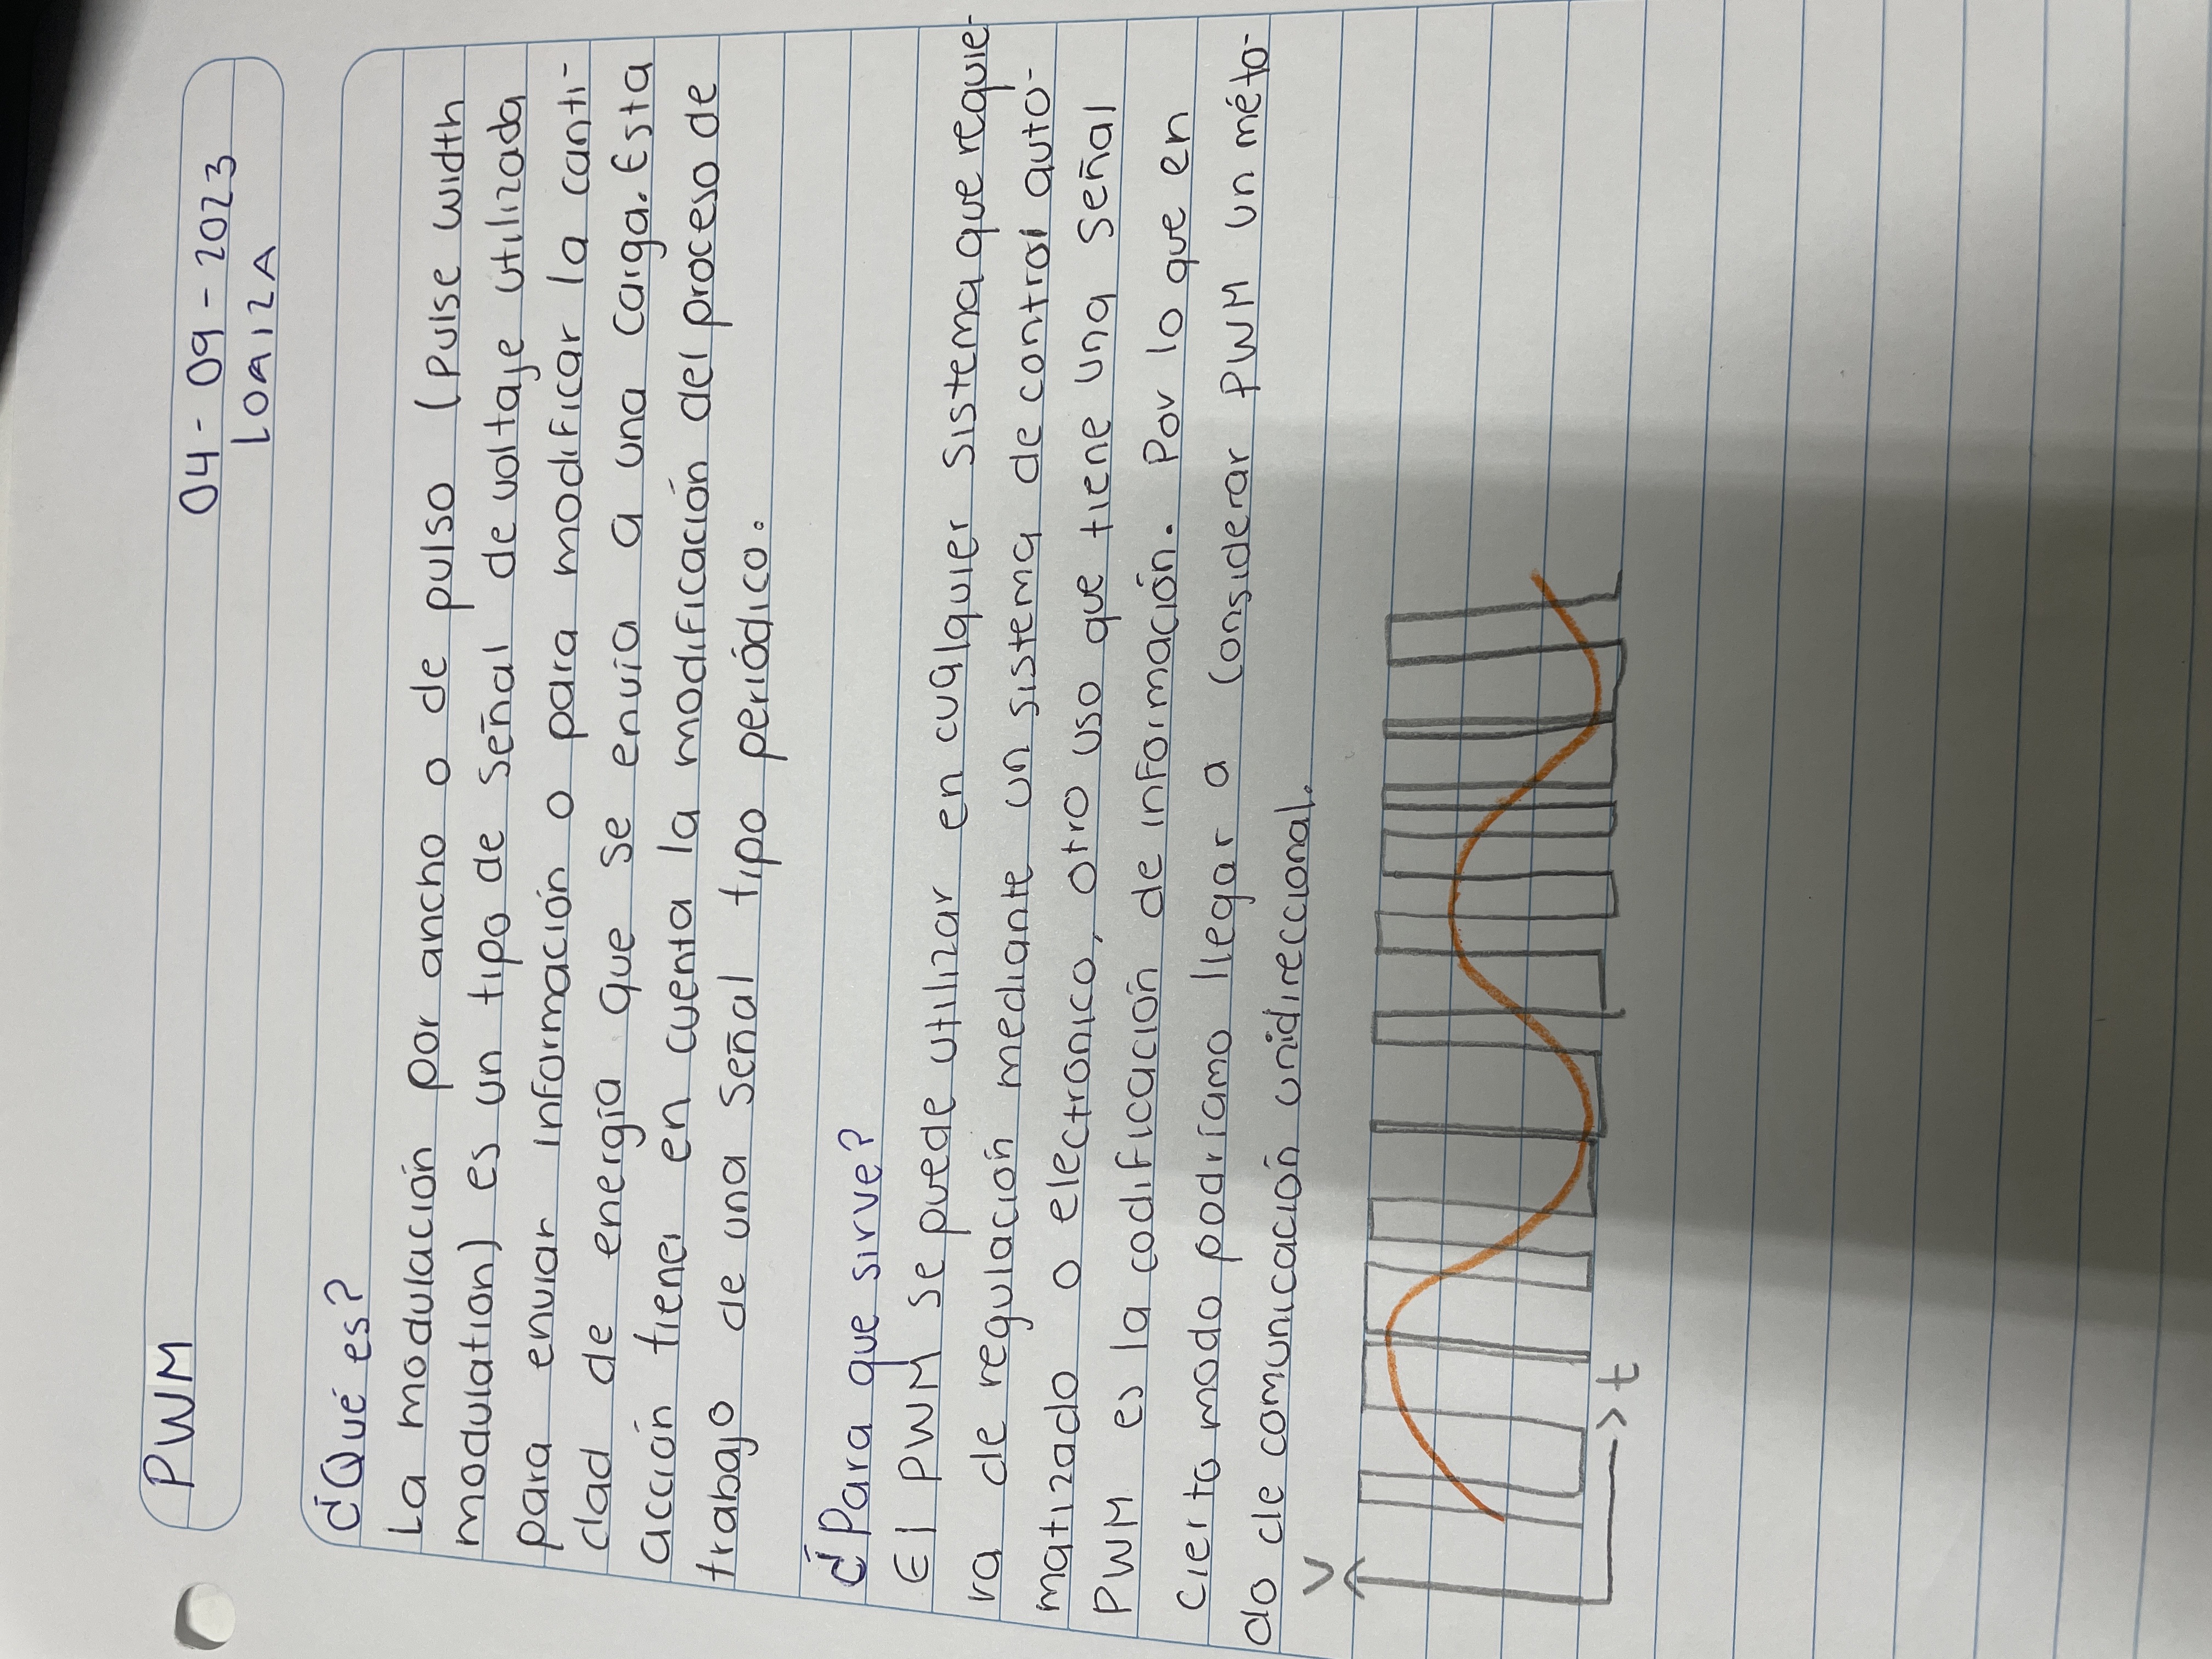 PWM
04-09-2023
LOAIZA
¿Qué es?
La modulación por ancho o de pulso (pulse width
modulation) es un tipo de señal de voltaje utilizada
para enviar información o para modificar la canti-
dad de energía que se envía a una carga. Esta
acción tiene en cuenta la modificación del proceso de
trabajo de una señal tipo periódico.
¿Para que sirve?
El PWM se puede utilizar en cualquier sistema que requie-
ra de regulación mediante un sistema de control auto-
matizado o electrónico, otro uso que tiene una señal
PWM es la codificación de información. Por lo que en
cierto modo podríamo llegar a considerar PWM un méto-
do de comunicación unidireccional.
V
t